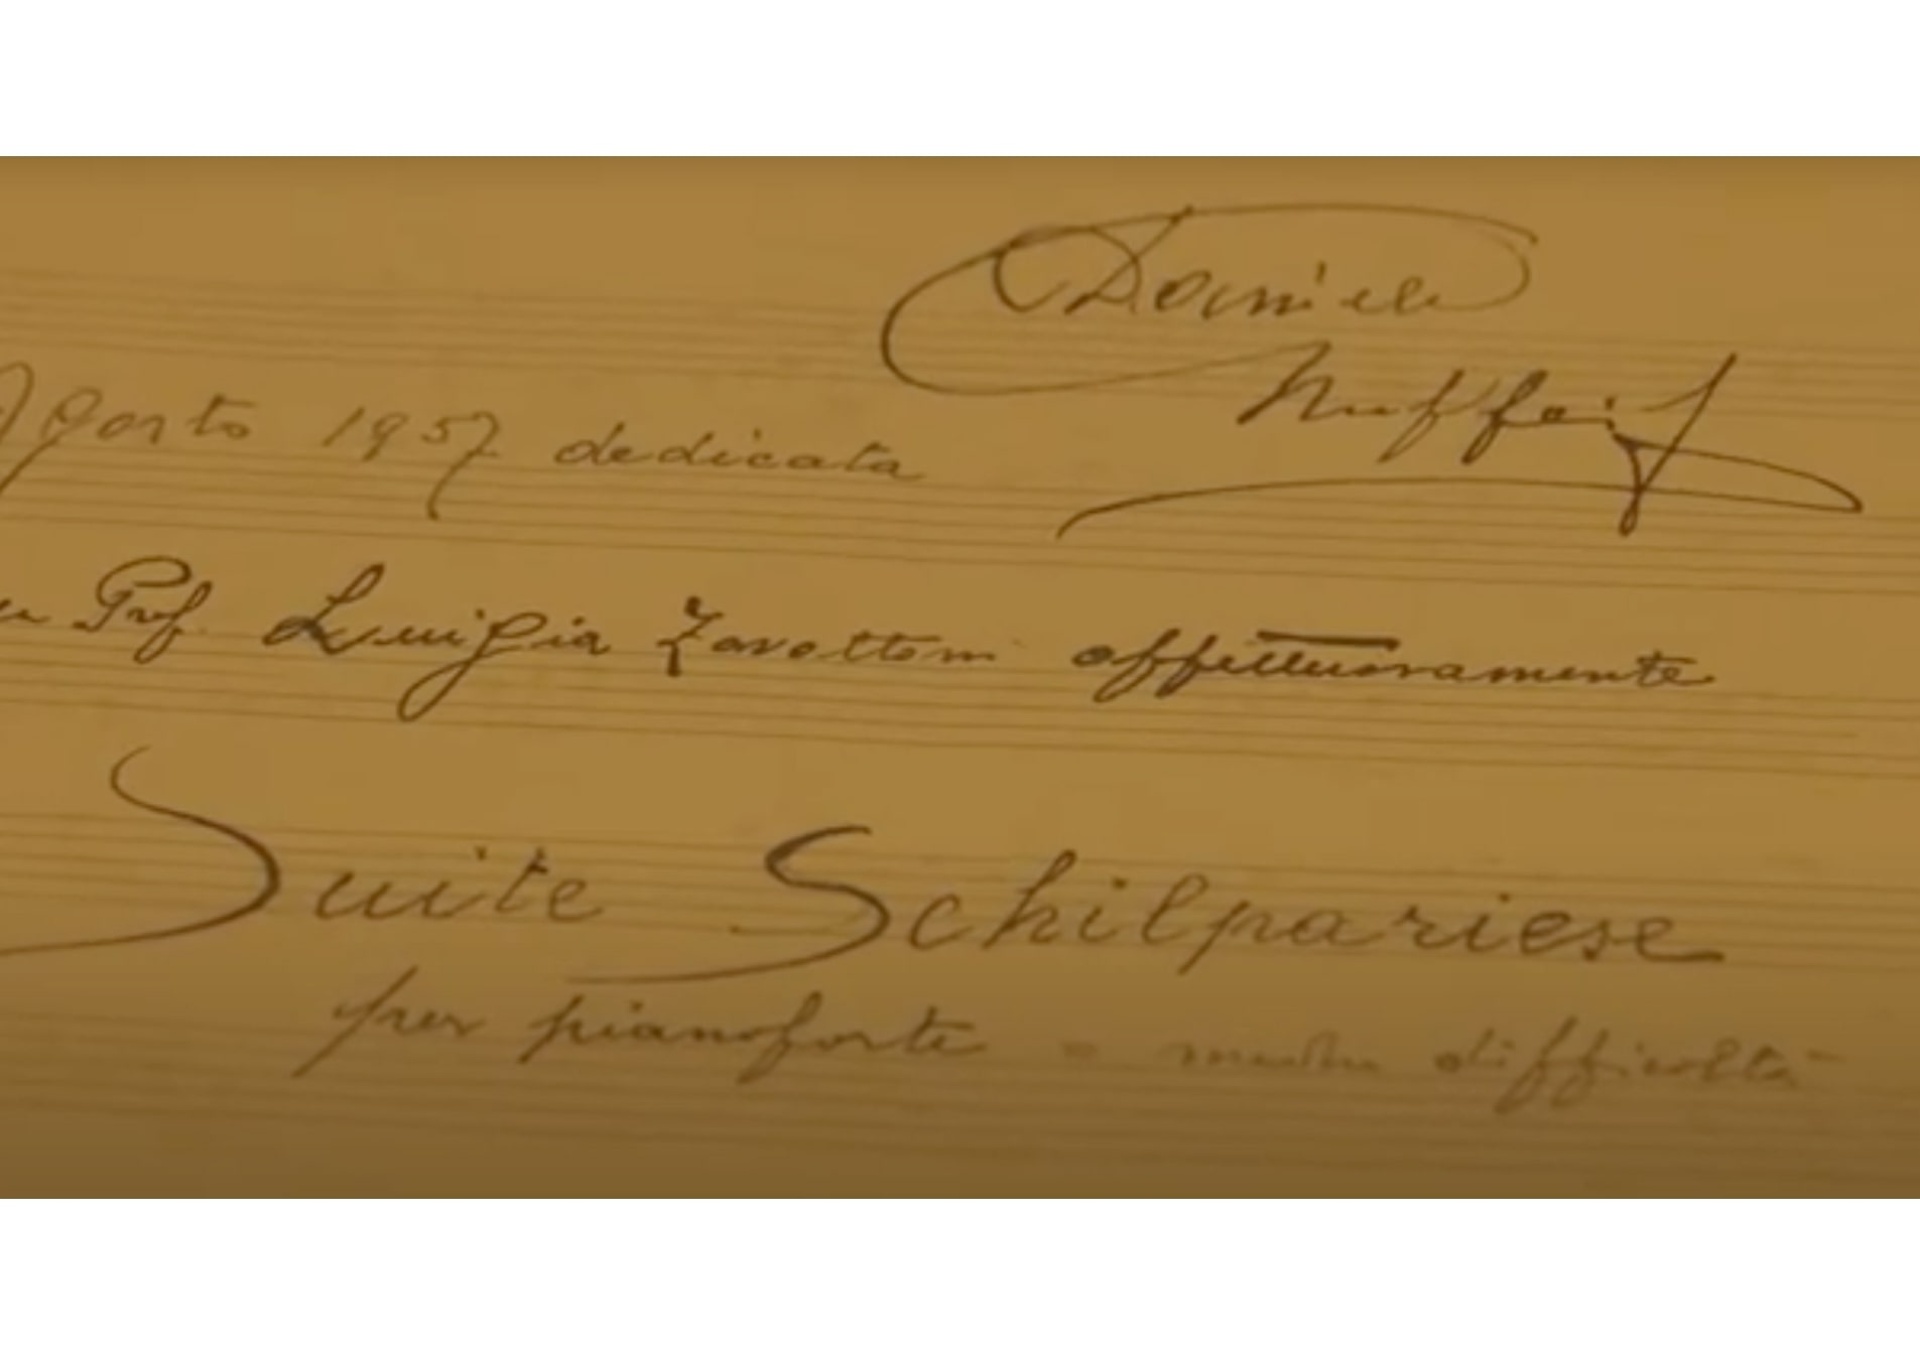 Daniele
Maffeis
Agosto 1957 dedicata
Prof. Luigia Zavatteri affettuosamente
Suite Schilpariese
per pianoforte = media difficoltà